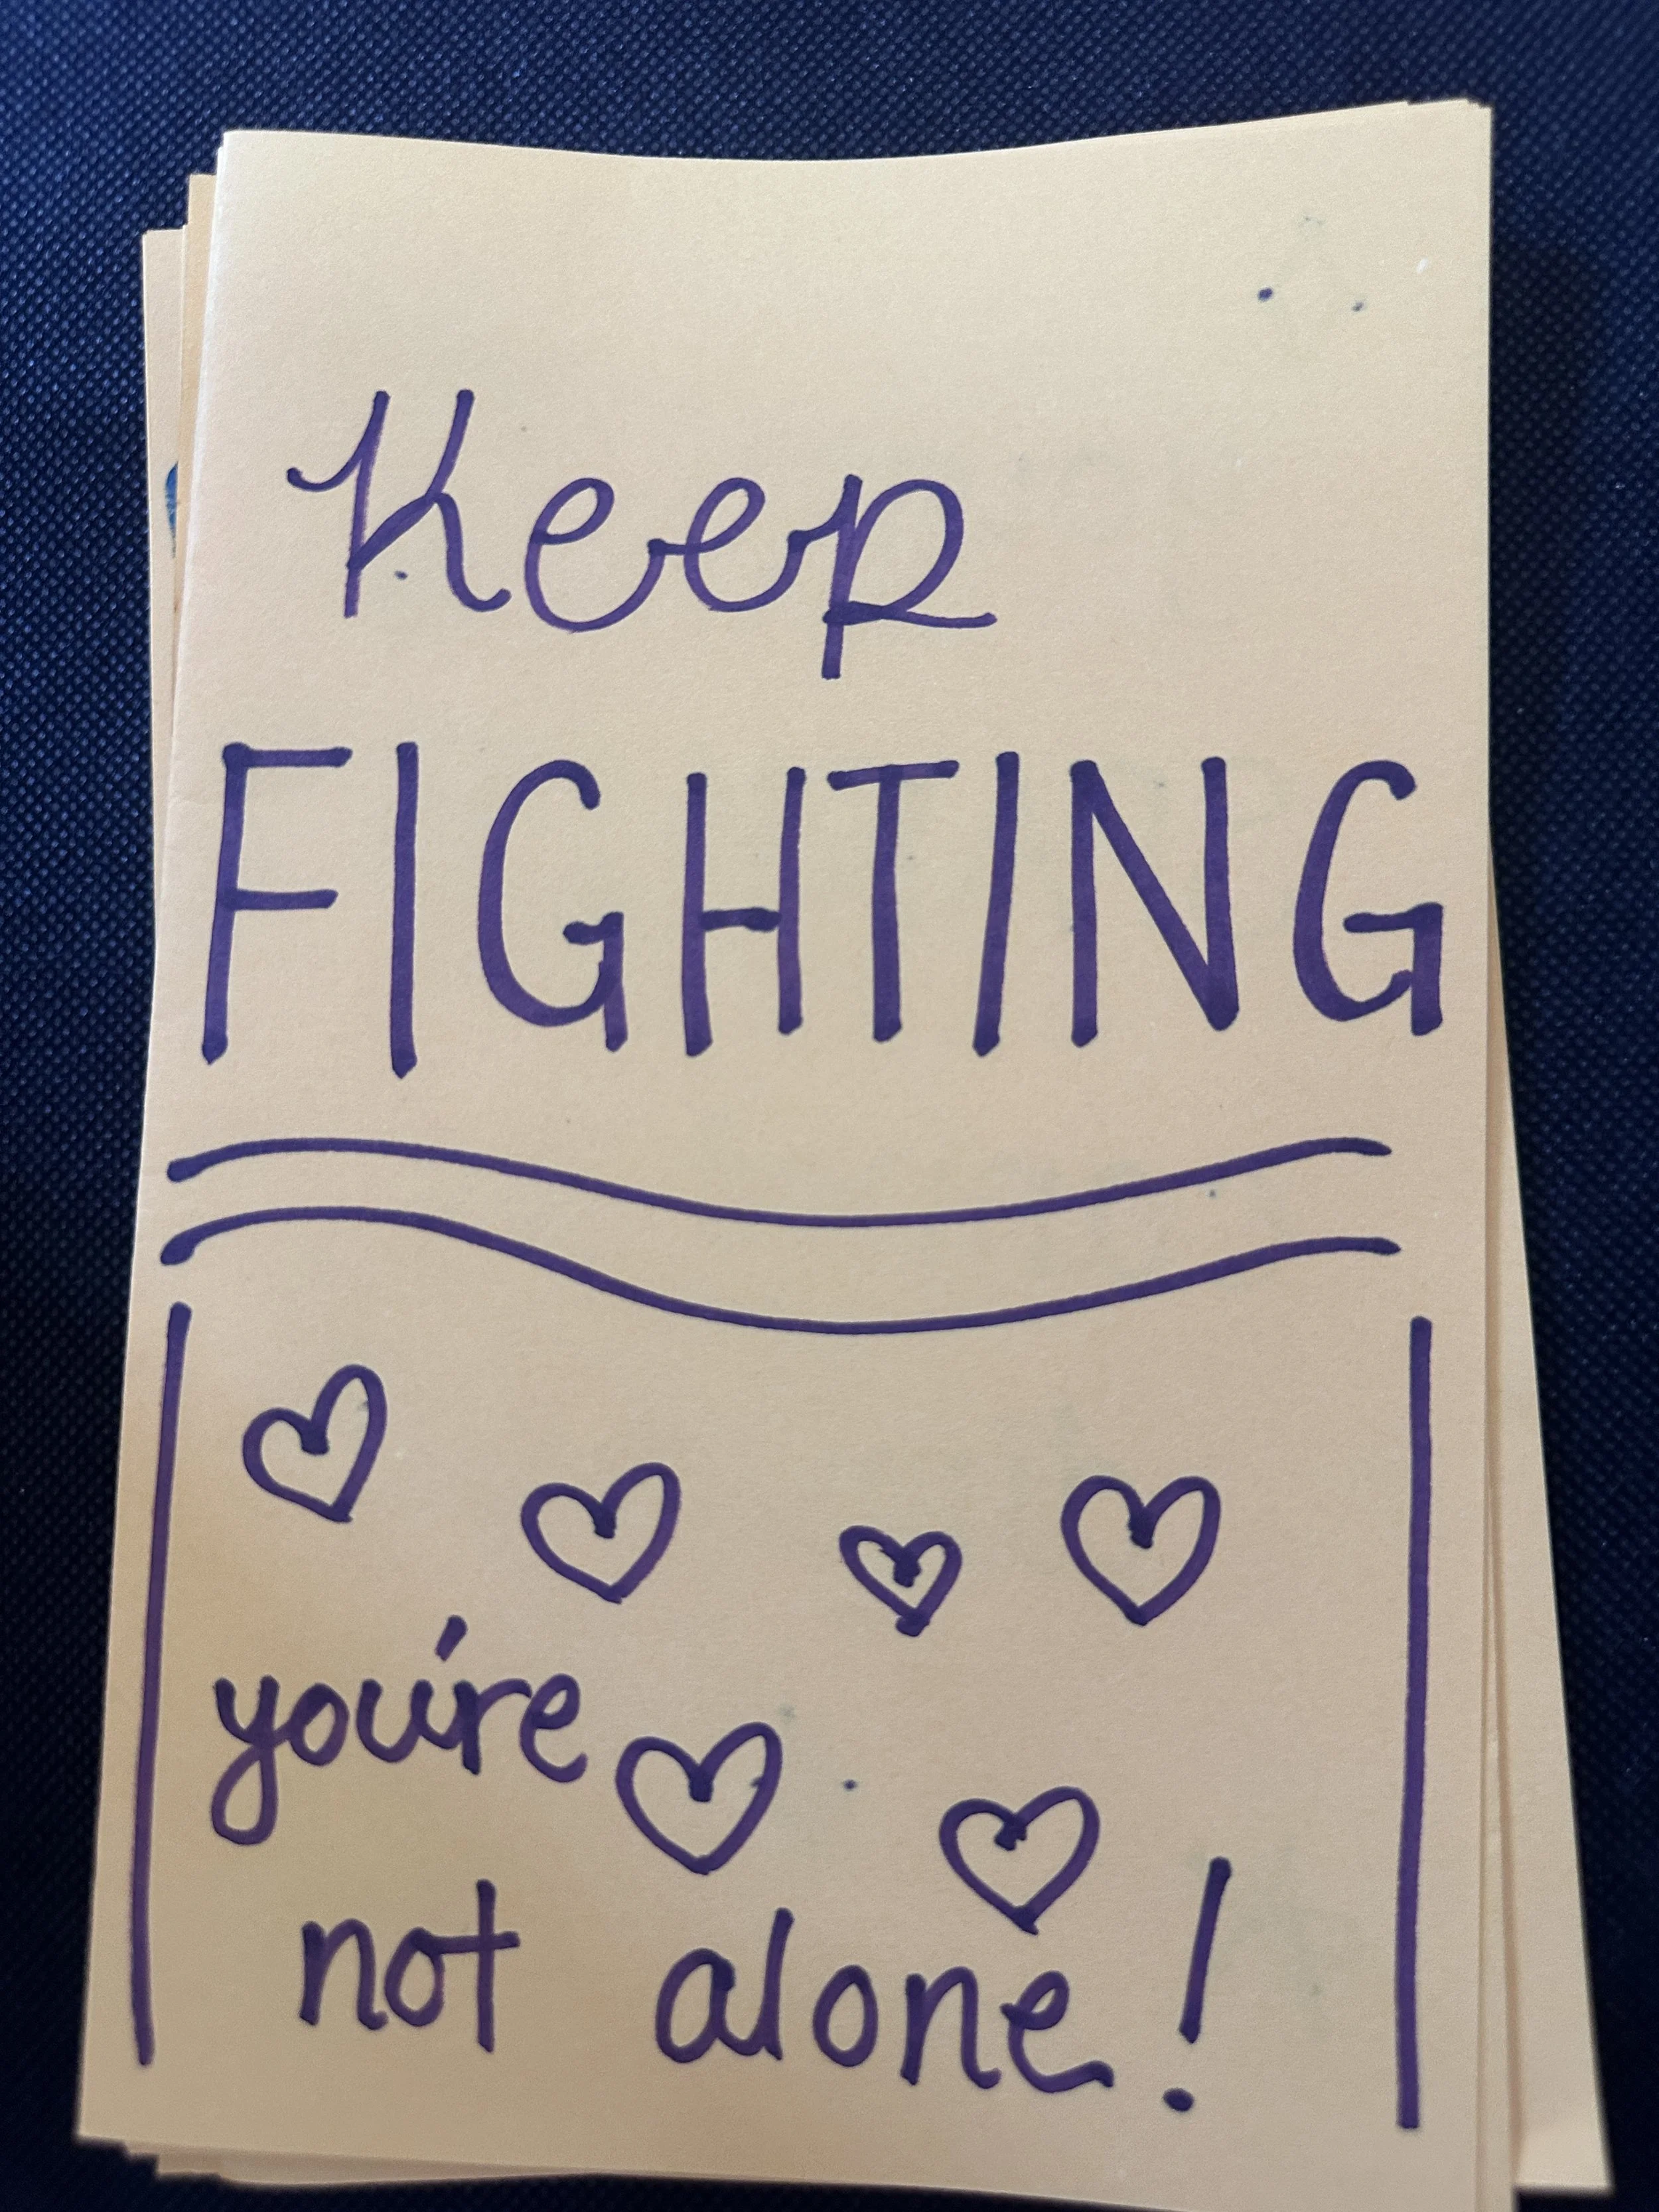 Keep
FIGHTING
you're
not alone!